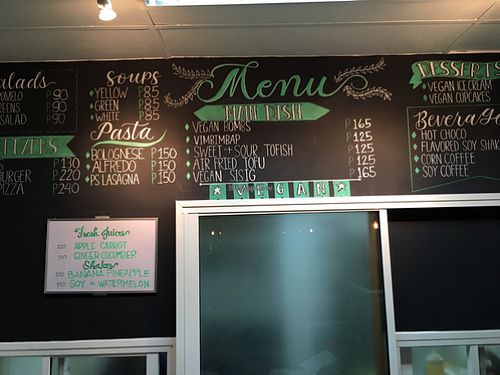 alads
POMELO P90
EENS P90
SALAD P90
IZERS
P130
BURGER P220
PIZZA P240
Soups
YELLOW P85
GREEN P85
WHITE P85
Pasta
BOLOGNESE P150
ALFREDO P150
PS LASAGNA P150
Menu
MAIN DISH
VEGAN BOMBS P165
VIMBIMBAP P125
SWEET + SOUR TOFISH P125
AIR FRIED TOFU P125
VEGAN SISIG P165
VEGAN
DESSERTS
VEGAN ICE CREAM
VEGAN CUPCAKES
Beverage
HOT CHOCO
FLAVORED SOY SHAK
CORN COFFEE
SOY COFFEE
Fresh Juices
120 APPLE CARROT
120 GINGER CUCUMBER
Shakes
110 BANANA PINEAPPLE
110 SOY + WATERMELON